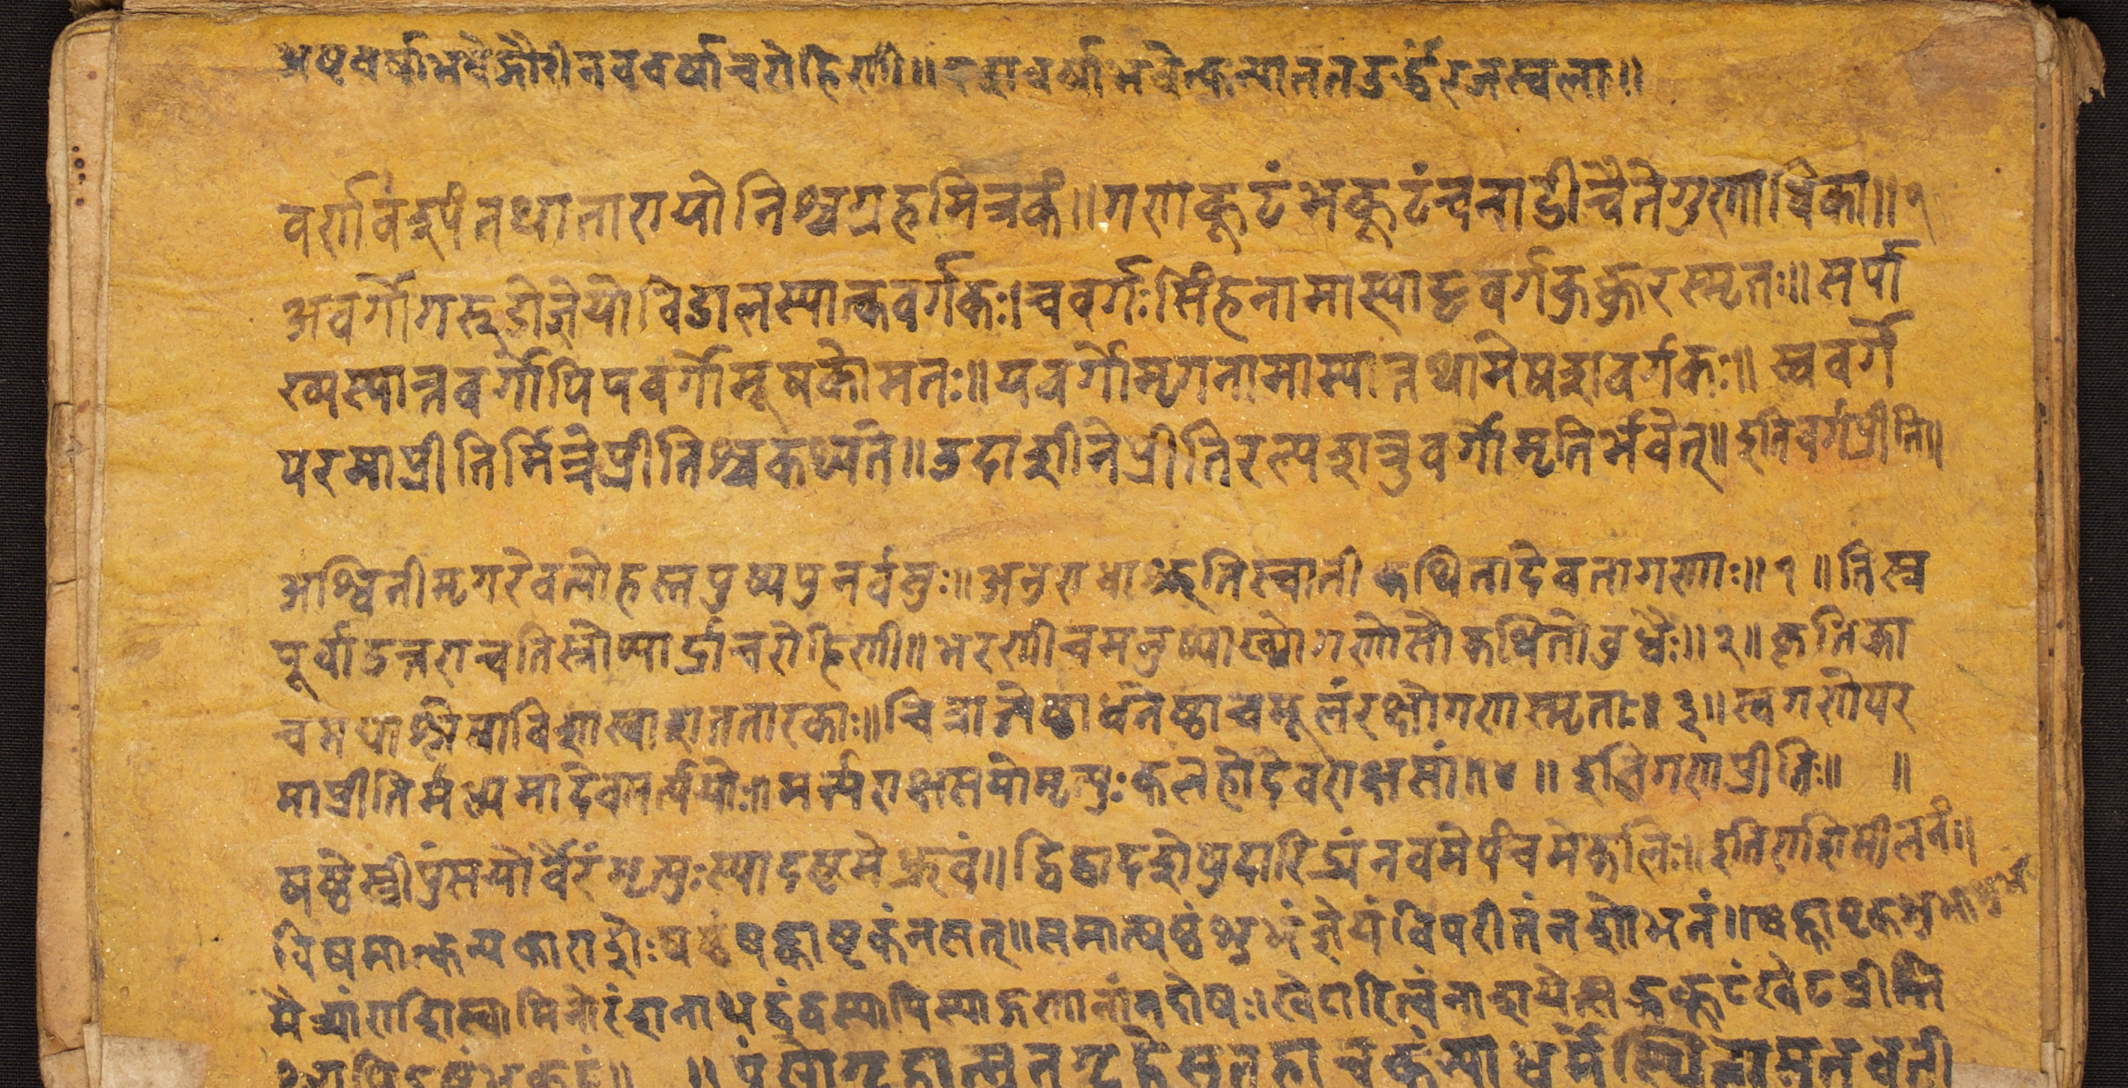 अष्टवर्षाभवेद्गौरीनववर्षाचरोहिणी॥दशवर्षाभवेत्कन्याततउर्द्ध्वंरजस्वला॥
वर्णावंश्पंतथातारायोनिश्चग्रहमित्रकं॥गणकूटंभकूटंचनाडीचैतेगुणाधिका॥१
अवर्गोगरूडोज्ञेयोविडालस्यात्कवर्गकः।चवर्गःसिंहनामास्याट्टवर्गकुर्कुरस्मृतः॥सर्पा
ख्यस्यात्तवर्गोपिपवर्गोमूषकोमतः॥यवर्गोमृगनामास्यात्तथामेषशवर्गकः॥स्ववर्गे
परमाप्रीतिर्मित्रेप्रीतिश्चकथ्यते॥उदाशीनेप्रीतिरल्पशत्रुवर्गोमृतिर्भवेत्॥इतिवर्गप्रीति॥
अश्विनीमृगरेवत्योहस्तपुष्यपुनर्वसुः॥अनुराधाश्रुतिस्वातीकथितादेवतागणः॥१॥तिस्र
पूर्वाउत्तराचतिस्रोप्यार्द्राचरोहिणी॥भरणीचमनुष्याख्योगणोसौकथितोवुधैः॥२॥कृतिका
चमघाश्लेषाविशाखाशततारकाः॥चित्राजेष्ठाधनेष्ठाचमूलंरक्षोगणस्मृताः॥३॥स्वगणेपर
माप्रीतिर्मध्यमादेवमर्त्ययोः॥मर्त्यराक्षसयोमृत्युःकलहोदेवराक्षसां॥४॥इतिगणप्रीतिः॥ ॥
षष्ठेस्त्रीपुंसयोर्वैरंमृत्युःस्यादष्टमेध्रुवं॥द्विद्वादशेपुदारिद्र्यंनवमेपंचमेकलिः॥इतिराशिमीलनं॥
विषमात्कन्यकाराशेःषष्ठंषष्ठाष्टकंनसत्॥समात्षष्ठंशुभंज्ञेयंविपरीतंनशोभनं॥
मैत्र्यांराशिस्वामिनोरंशनाथद्वंद्वस्यापिस्याद्गणानांनदोषः।खेटारित्वंनाशयेत्सद्भकूटंखेटप्रीति